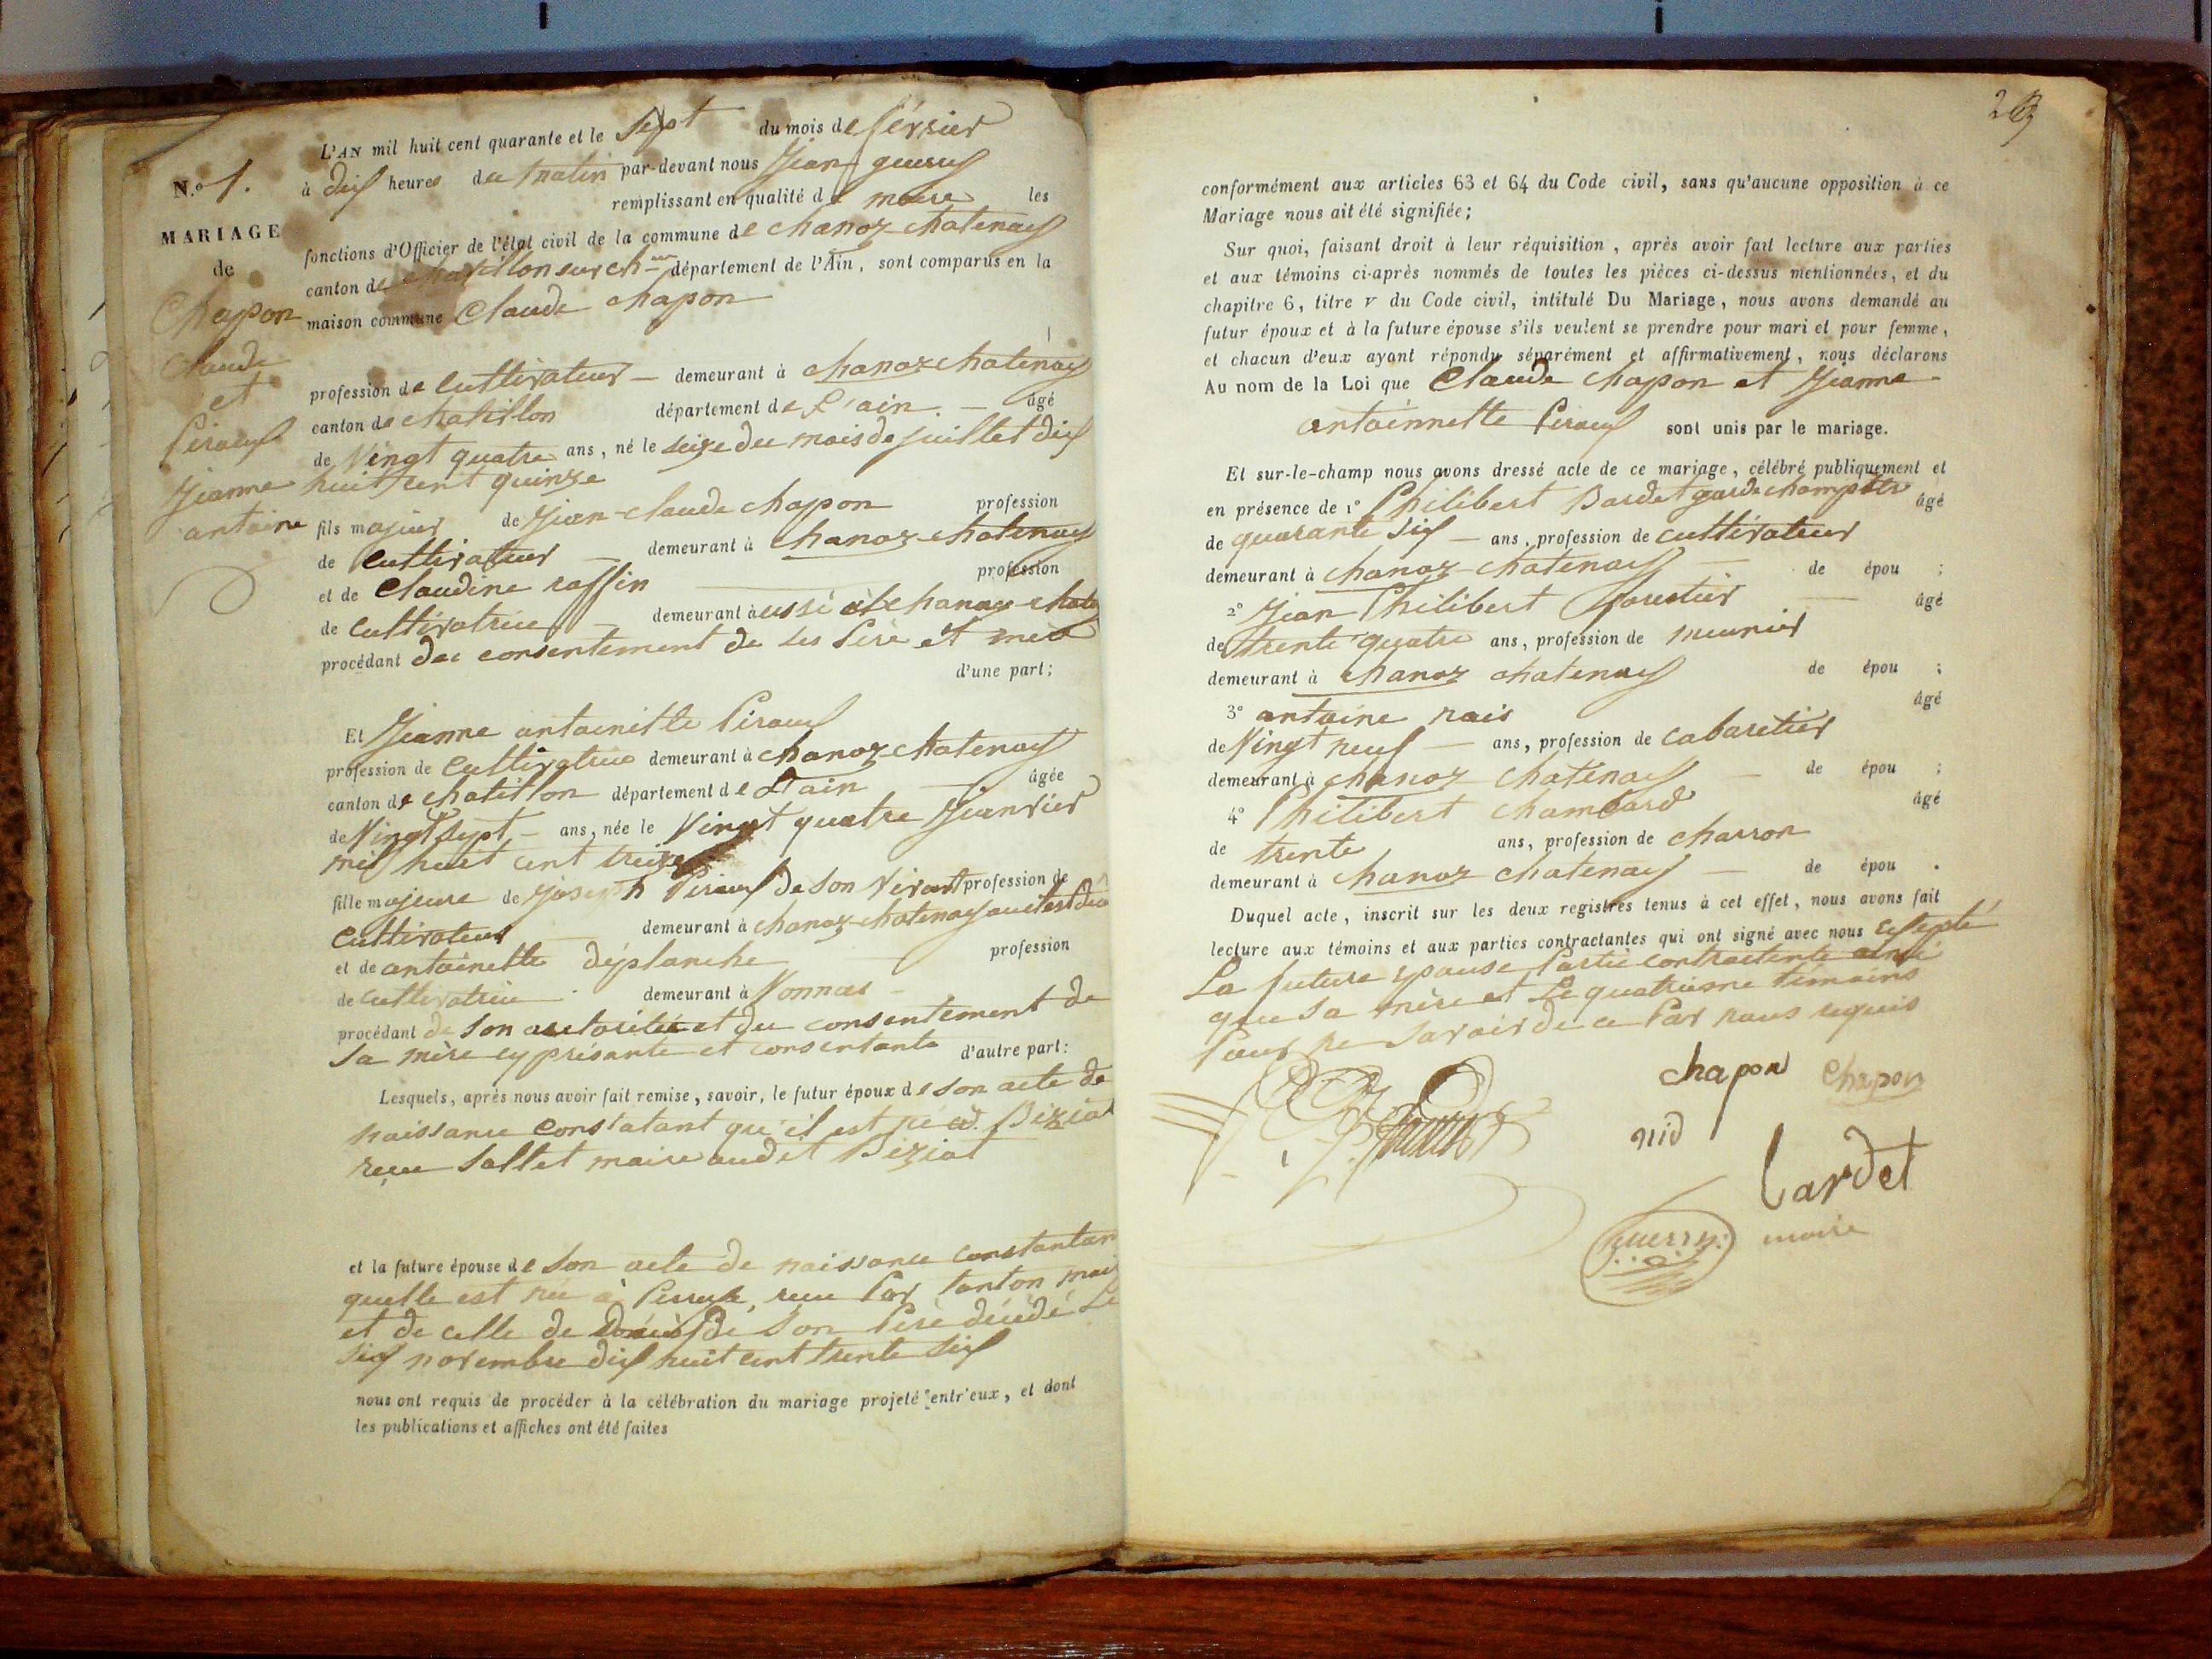 N.o 1.
MARIAGE
de
Chapon
Claude
et
Piroux
Jeanne
antoine
L'AN mil huit cent quarante et le sept du mois de février
à dix heures du matin par-devant nous Jean guerry
remplissant en qualité de maire les
fonctions d'Officier de l'état civil de la commune de chanoz chatenay
canton de chatillon sur ch.ne département de l'Ain, sont comparus en la
maison commune Claude chapon
profession de cultivateur — demeurant à chanoz chatenay
canton de chatillon département de L'ain — âgé
de Vingt quatre ans, né le seize du mois de juillet dix
huit cent quinze
fils majeur de Jean-claude chapon profession
de Cultivateur — demeurant à chanoz-chatenay
et de Claudine raffin profession
de cultivatrice — demeurant aussi à chanoz-chate
procédant du consentement de ses père et mère
d'une part;
Et Jeanne antoinette Piroux
profession de Cultivatrice demeurant à chanoz chatenay
canton de chatillon département de L'ain — âgée
de Vingt sept — ans, née le Vingt quatre Jeanvier
mil huit cent treize
fille majeure de joseph Piroux de son Vivant profession de
Cultivateur demeurant à chanoz-chatenay
et de antoinette déplanche — profession
de cultivatrice demeurant à Vonnas
procédant de son autorité et du consentement de
sa mère cy présante et consentante d'autre part:
Lesquels, après nous avoir fait remise, savoir, le futur époux de son acte de
naissance constatant qu'il est né à Biziat
reçu sallet maire audit Biziat
et la future épouse de son acte de naissance constantan
quelle est née à Perrex, reçu Par tonton mai
et de celle de décès de son Père décédé Le
six novembre dix huit cent trente six
nous ont requis de procéder à la célébration du mariage projeté entr'eux, et dont
les publications et affiches ont été faites
conformément aux articles 63 et 64 du Code civil, sans qu'aucune opposition à ce
Mariage nous ait été signifiée;
Sur quoi, faisant droit à leur réquisition, après avoir fait lecture aux parties
et aux témoins ci-après nommés de toutes les pièces ci-dessus mentionnées, et du
chapitre 6, titre V du Code civil, intitulé Du Mariage, nous avons demandé au
futur époux et à la future épouse s'ils veulent se prendre pour mari et pour femme,
et chacun d'eux ayant répondu séparément et affirmativement, nous déclarons
Au nom de la Loi que Claude chapon et Jeanne
antoinnette Piroux sont unis par le mariage.
Et sur-le-champ nous avons dressé acte de ce mariage, célébré publiquement et
en présence de 1° Philibert Bardet garde champetre âgé
de quarante six — ans, profession de cultivateur
demeurant à chanoz-chatenay — de épou ;
2° Jean Philibert forestier — âgé
de trente quatre ans, profession de meunier
demeurant à chanoz chatenay de épou ;
3° antoine nais âgé
de Vingt neuf — ans, profession de cabaretier
demeurant à chanoz chatenay — de épou ;
4° Philibert chambard âgé
de trente ans, profession de charron
demeurant à chanoz chatenay — de épou .
Duquel acte, inscrit sur les deux registres tenus à cet effet, nous avons fait
lecture aux témoins et aux parties contractantes qui ont signé avec nous excepté
La future epouse Partie contractente ainsi
que sa mère et Le quatrieme témoins
Pour ne savoir de ce Par nous requis
chapon Chapon
nid
bardet
guerry maire